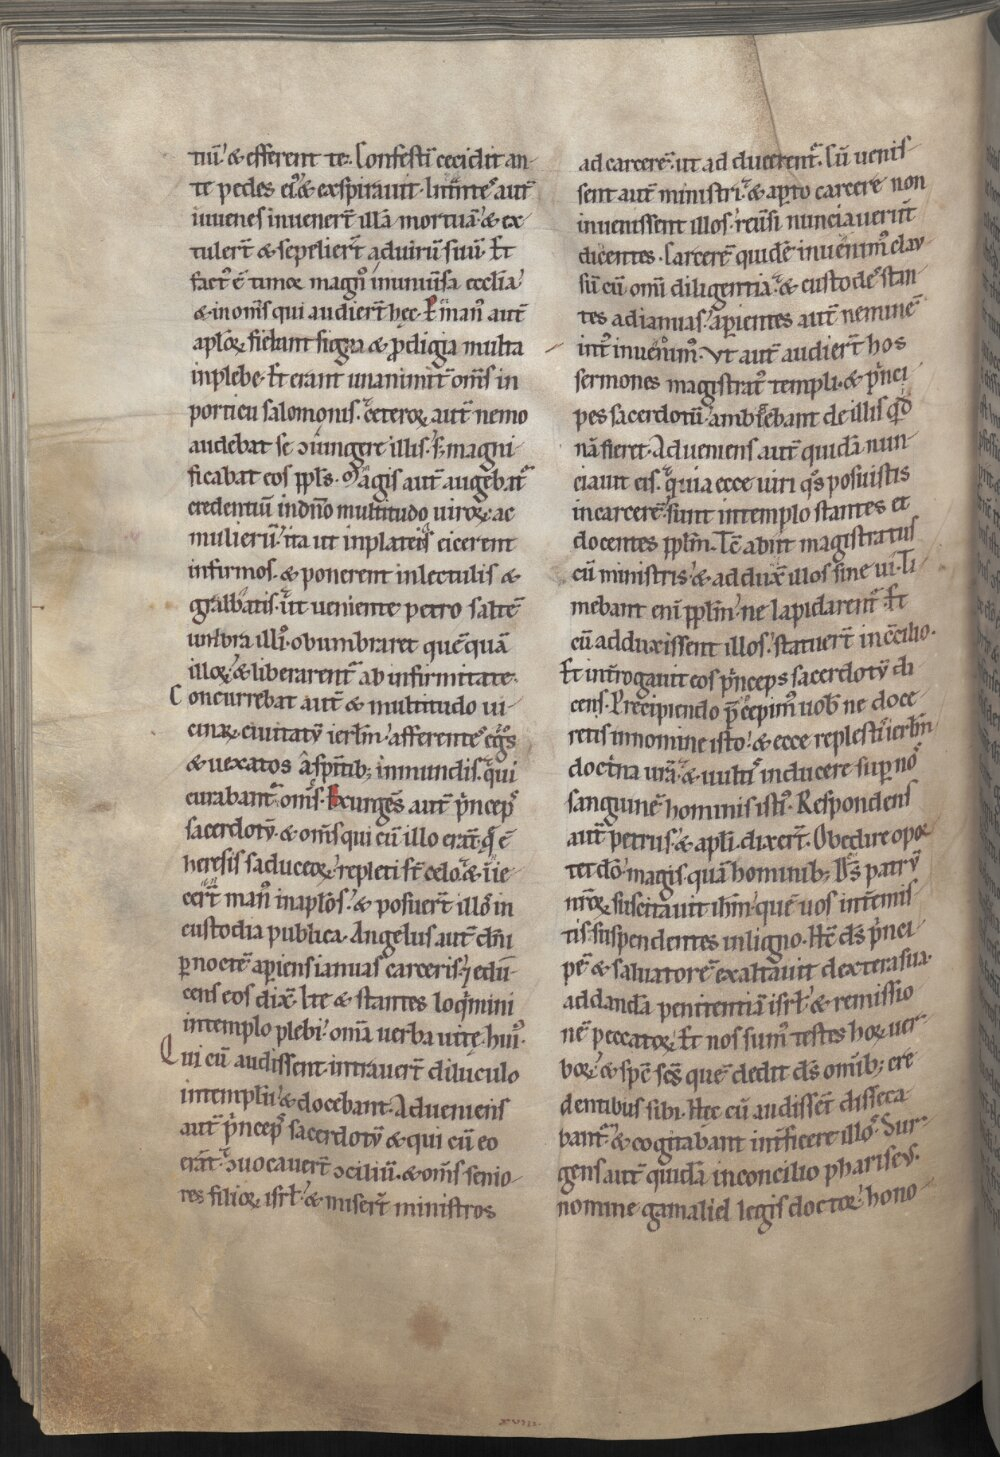 tuū́ & efferent te. Confestī cecidit an-
te pedes ei᷒ & exspirauit. Intrāntes aut̄
iuuenes inuener̄t illā mortuā & ex-
tuler̄t & sepelier̄t ad uirū suū. Et
fact᷒ ē timor magn᷒ in uniūsa ecclīa
& in om̄s qui audier̄t hęc. P man᷒ aut̄
aplōꝝ fiebant signa & ꝓdigia multa
in plebe. Et erant unanimit̄ om̄s in
porticu salomonis. Ceteroꝝ aut̄ nemo
audebat se ↄiungere illis. S; magni-
ficabat eos ppl̄s. Magis aut̄ augebat᷑
credentiū in dn̄o multitudo uiroꝝ ac
mulierū. ita ut in plateis eicerent
infirmos. & ponerent in lectulis &
grabbatis. ut ueniente petro saltē
umbra illi᷒ obumbraret quēquā
illoꝝ & liberarent᷑ ab infirmitate.
Concurrebat aut̄ & multitudo ui-
cinaꝝ ciuitatū ierl̄m afferentes egros
& uexatos a sp̄itib; inmundis. qui
curabant᷑ om̄s. Exurgēs aut̄ p̄nceps
sacerdotū & om̄s qui cū illo erāt q̄ ē
heresis saduceoꝝ repleti st̄ zelo & iie-
cer̄t man᷒ in aplōs & posuer̄t illos in
custodia publica. Angelus aut̄ dn̄i
ꝑ noctē aperiens ianuas carceris, ⁊ edu-
cens eos dix̄. Ite & stantes loq̄mini
in templo plebi om̄a uerba uitę hui᷒.
Qui cū audissent intrauer̄t diluculo
in templū & docebant. Adueniens
aut̄ p̄nceps sacerdotū & qui cū eo
erāt ↄuocauer̄t ↄciliū & om̄s senio-
res filioꝝ isrl̄ & miser̄t ministros
ad carcerē ut adducerent᷑. Cū uenis-
sent aut̄ ministri & apto carcere non
inuenissent illos. reūsi nunciauer̄t
dicentes. Carcerē quidē inuenim᷒ clau-
sū cū omi diligentia & custodes stan-
tes ad ianuas. aperientes aut̄ neminē
int᷒ inuenim᷒. Vt aut̄ audier̄t hos
sermones magistrat᷒ templi & p̄nci-
pes sacerdotū ambigebant de illis qd̄
nā fieret. Adueniens aut̄ quidā nun-
ciauit eis. quia ecce uiri q̊s posuistis
in carcerē sunt in templo stantes et
docentes ppl̄m. Tc̄ abiit magistratus
cū ministris & addux̄ illos sine ui. Ti-
mebant eni ppl̄m ne lapidarent᷑. Et
cū adduxissent illos statuer̄t in cc̄ilio.
Et int̄rogauit eos p̄nceps sacerdotū di-
cens. Precipiendo p̄cepim᷒ uob̄ ne doce-
retis in nomine isto & ecce replestis ierl̄m
doctrina ur̄a & uultis inducere sup nos
sanguinē hominis isti᷒. Respondens
aut̄ petrus & apl̄i dixer̄t. Obedire opor-
tet dō magis quā hominib;. Ds̄ patrū
nr̄oꝝ suscitauit ih̄m quē uos intēmis-
tis suspendentes in ligno. Hc̄ ds̄ p̄nci-
pē & saluatorē exaltauit dextera sua
ad dandā penitentiā isrl̄ & remissio-
nē peccatoꝝ. Et nos sum᷒ testes hoꝝ uer-
boꝝ & sp̄c sc̄s quē dedit ds̄ omib; cre-
dentibus sibi. Hęc cū audissēt disseca-
bant᷑ & cogitabant int̄ficere illos. Sur-
gens aut̄ quidā in concilio phariseus
nomine gamaliel legis doctor hono-
xviii.